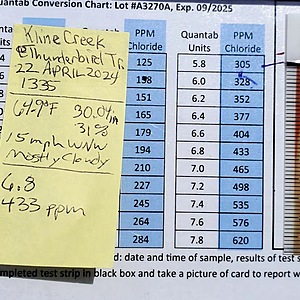 Quantab Conversion Chart: Lot #A3270A, Exp. 09/2025
Kline Creek
@Thunderbird Tr.
22 APRIL 2024
1335
64.9°F 30.04in
31%
15 mph WNW
Mostly Cloudy
6.8
433 ppm
PPM Chloride
125
158
151
165
179
194
210
227
245
264
284
Quantab Units PPM Chloride
5.8 305
6.0 328
6.2 352
6.4 377
6.6 404
6.8 433
7.0 465
7.2 498
7.4 535
7.6 576
7.8 620
d: date and time of sample, results of test s
mpleted test strip in black box and take a picture of card to report w